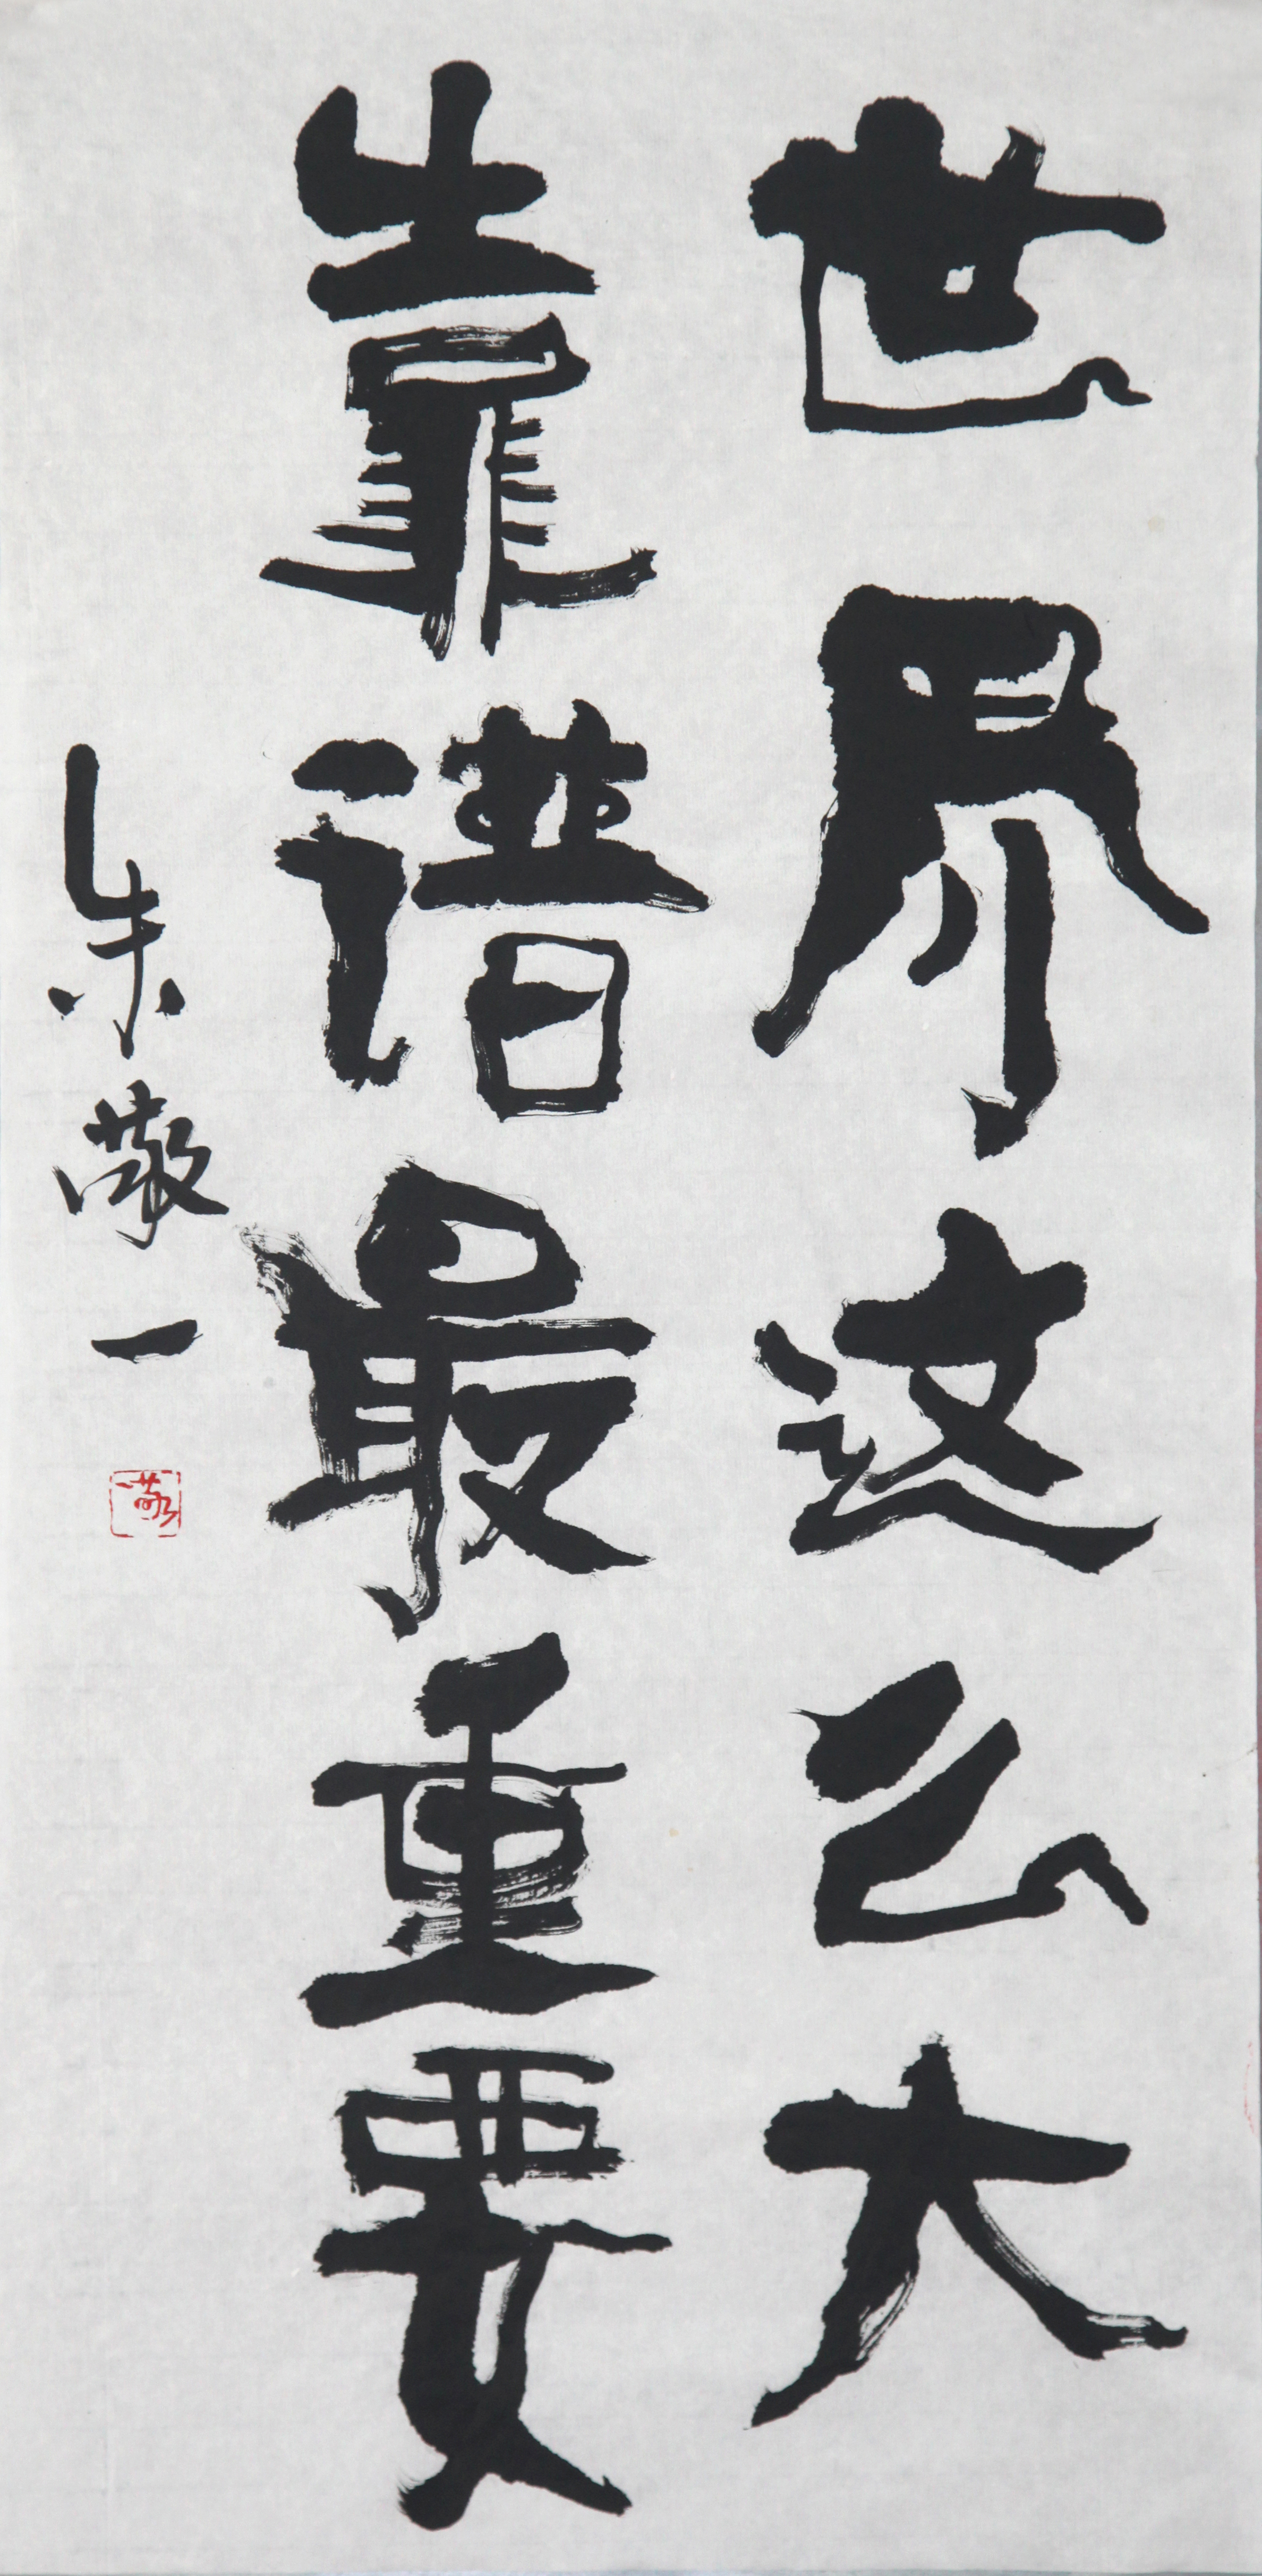 世界这么大
靠谱最重要
朱敬一
敬一